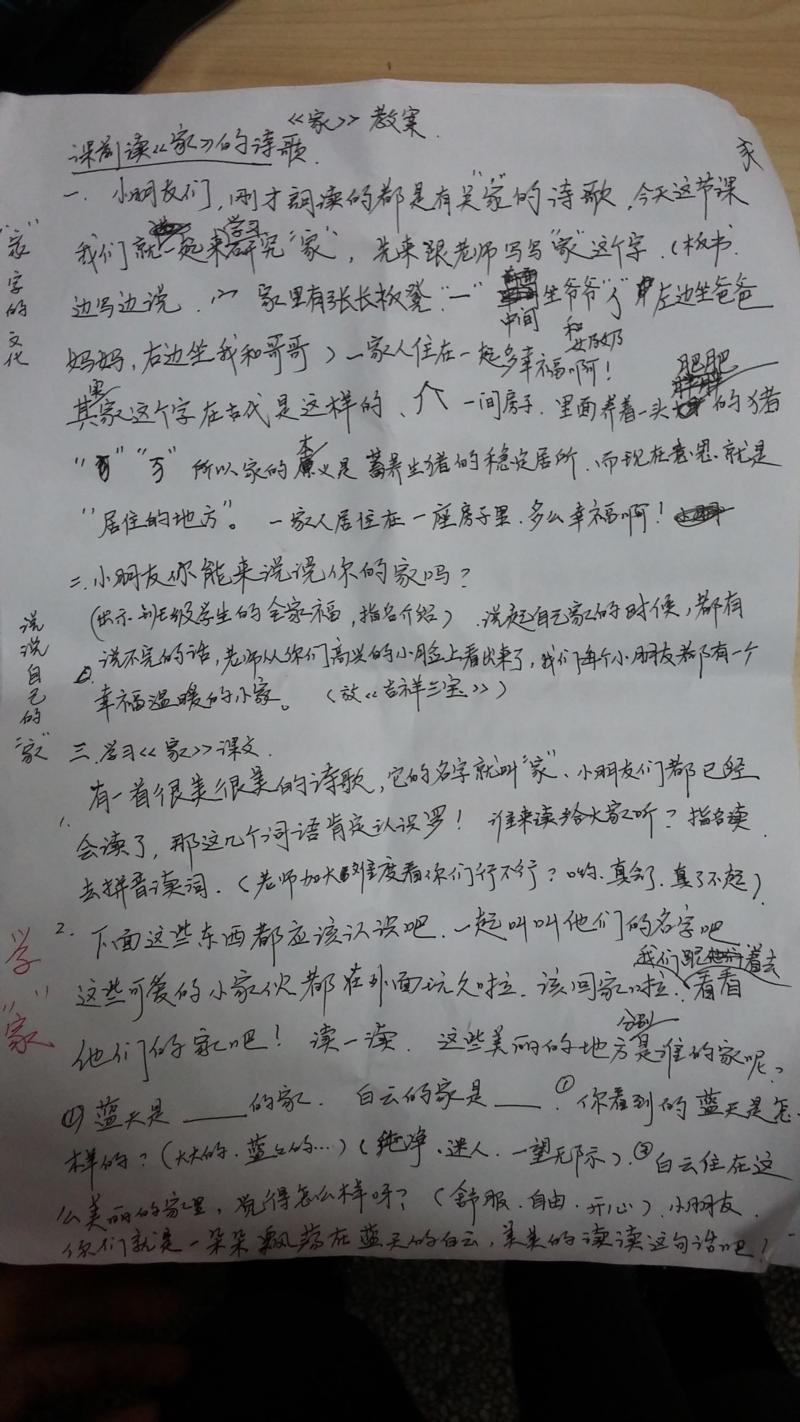 《家》教案
课前读《家》的诗歌
一. 小朋友们,刚才诵读的都是有关"家"的诗歌,今天这节课
我们就一起来学习"家",先来跟老师写写"家"这个字.(板书.
边写边说. 家里有张长板凳"一" 中间坐爷爷和奶奶 左边坐爸爸
妈妈,右边坐我和哥哥)一家人住在一起多幸福啊!
其实家这个字在古代是这样的、 一间房子.里面养着一头肥肥的猪
所以家的本义是蓄养生猪的稳定居所.而现在意思就是
"居住的地方"。一家人居住在一座房子里.多么幸福啊!
二.小朋友你能来说说你的家吗?
(出示 班级学生的全家福,指名介绍).说起自己家的时候,都有
说不完的话,老师从你们高兴的小脸上看出来了,我们每个小朋友都有一个
幸福温暖的小家。(放《吉祥三宝》)
三.学习《家》课文.
有一首很美很美的诗歌,它的名字就叫"家"、小朋友们都已经
1. 会读了,那这几个词语肯定认识罗!谁来读给大家听?指名读.
去拼音读词.(老师加大难度看你们行不行?哟.真会了.真了不起)
2. 下面这些东西都应该认识吧.一起叫叫他们的名字吧
这些可爱的小家伙都在外面玩久啦.该回家啦.我们跟着去看看
他们的家吧!读一读.这些美丽的地方分别是谁的家呢?
(1)蓝天是____的家.白云的家是____.①你看到的蓝天是怎
样的?(大大的.蓝蓝的…)(纯净.迷人.一望无际).②白云住在这
么美丽的家里,觉得怎么样呀?(舒服.自由.开心).小朋友.
你们就是一朵朵飘荡在蓝天的白云,美美的读读这句话吧!
"家"字的文化
说说自己的"家"
学"家"
家